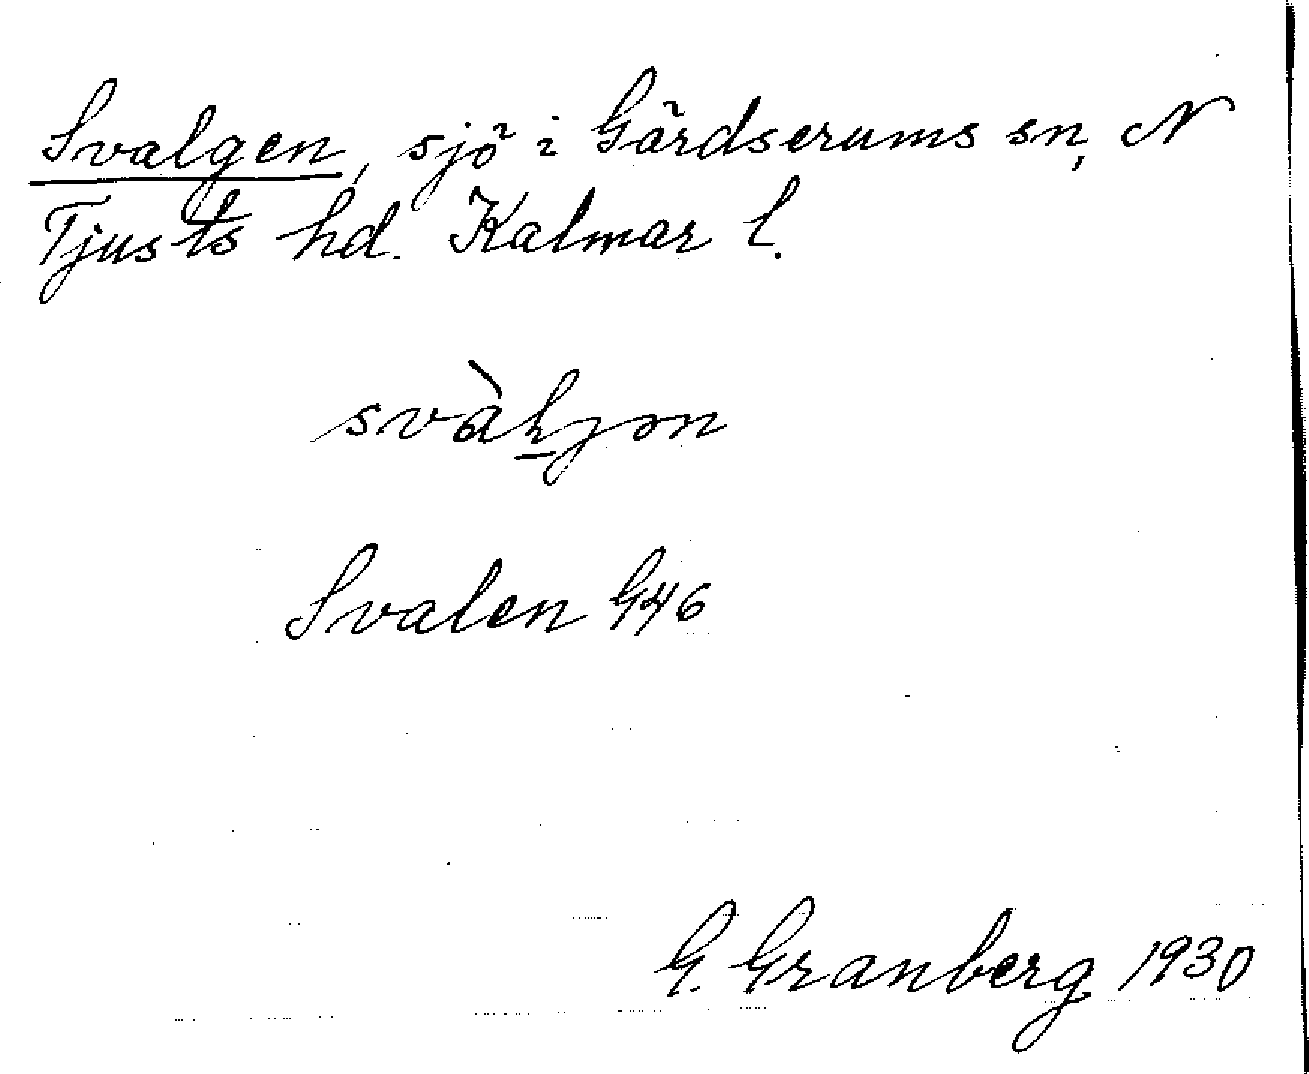 Svalgen, sjö i Gärdserums sn, N
Tjusts hd. Kalmar l.
svàl̠jən
Svalen G46
G. Granberg 1930